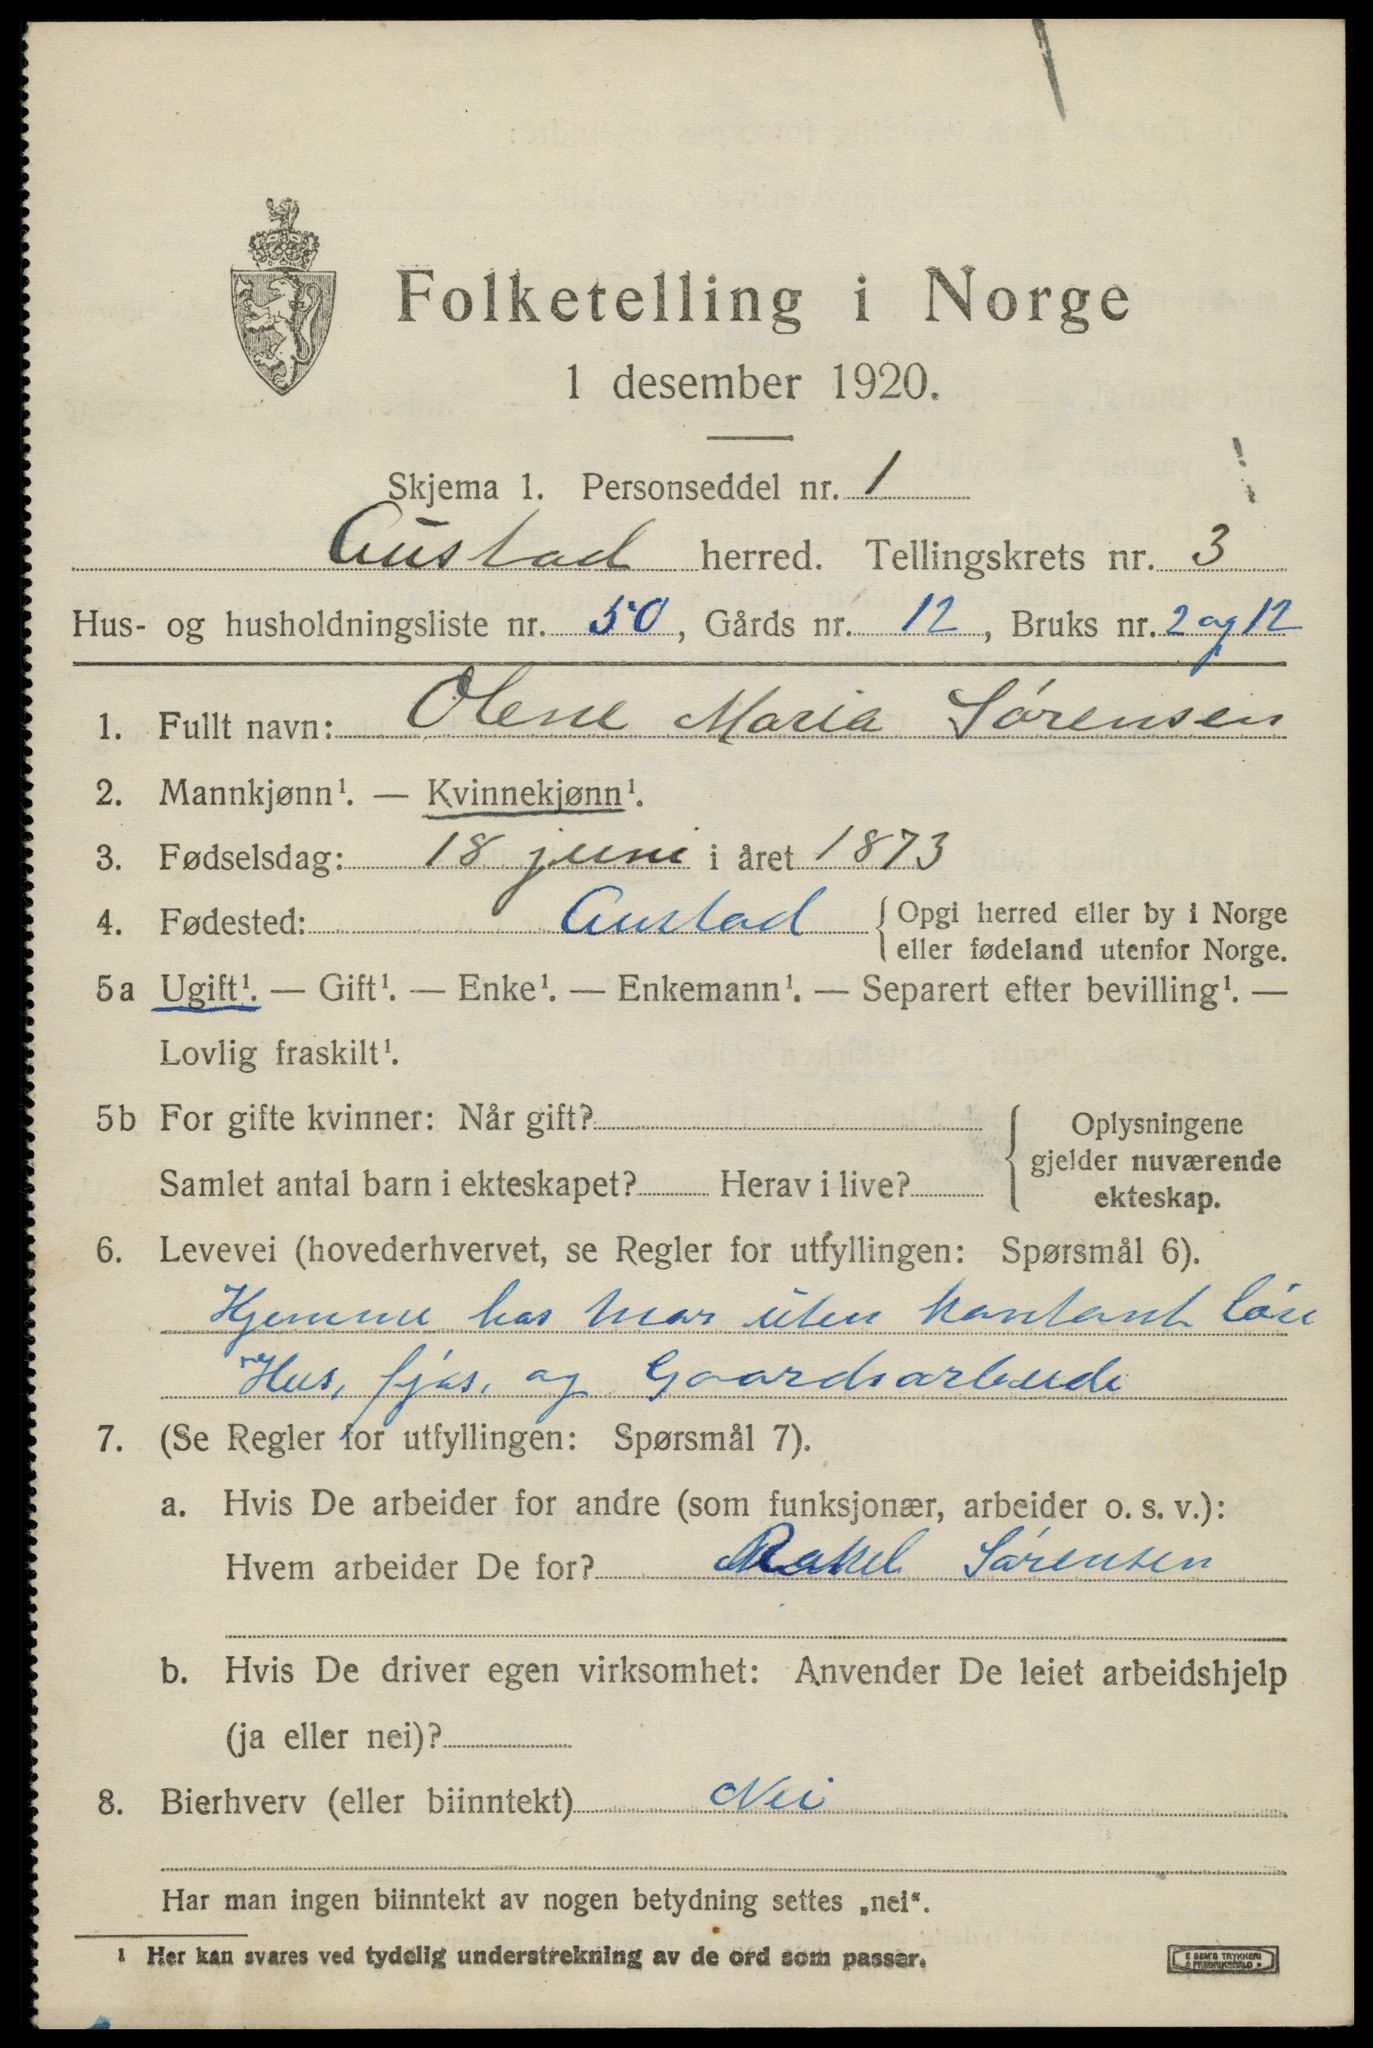 Folketelling i Norge
1 desember 1920.
Skjema 1. Personseddel nr. 1
Austad herred. Tellingskrets nr. 3
Hus- og husholdningsliste nr. 50, Gårds nr. 12, Bruks nr. 2 og 12
1. Fullt navn: Olene Maria Sørensen
2. Mannkjønn¹. — Kvinnekjønn¹.
3. Fødselsdag: 18 juni i året 1873
4. Fødested: Austad { Opgi herred eller by i Norge
eller fødeland utenfor Norge.
5a Ugift¹. — Gift¹. — Enke¹. — Enkemann¹. — Separert efter bevilling¹. —
Lovlig fraskilt¹.
5b For gifte kvinner: Når gift?
Samlet antal barn i ekteskapet? Herav i live?
{ Oplysningene
gjelder nuværende
ekteskap.
6. Levevei (hovederhvervet, se Regler for utfyllingen: Spørsmål 6).
Hjemme hos mor uten kontant løn
Hus, fjøs, og Gaardsarbeide
7. (Se Regler for utfyllingen: Spørsmål 7).
a. Hvis De arbeider for andre (som funksjonær, arbeider o. s. v.):
Hvem arbeider De for? Rakel Sørensen
b. Hvis De driver egen virksomhet: Anvender De leiet arbeidshjelp
(ja eller nei)?
8. Bierhverv (eller biinntekt) Nei
Har man ingen biinntekt av nogen betydning settes „nei“.
1 Her kan svares ved tydelig understrekning av de ord som passer.